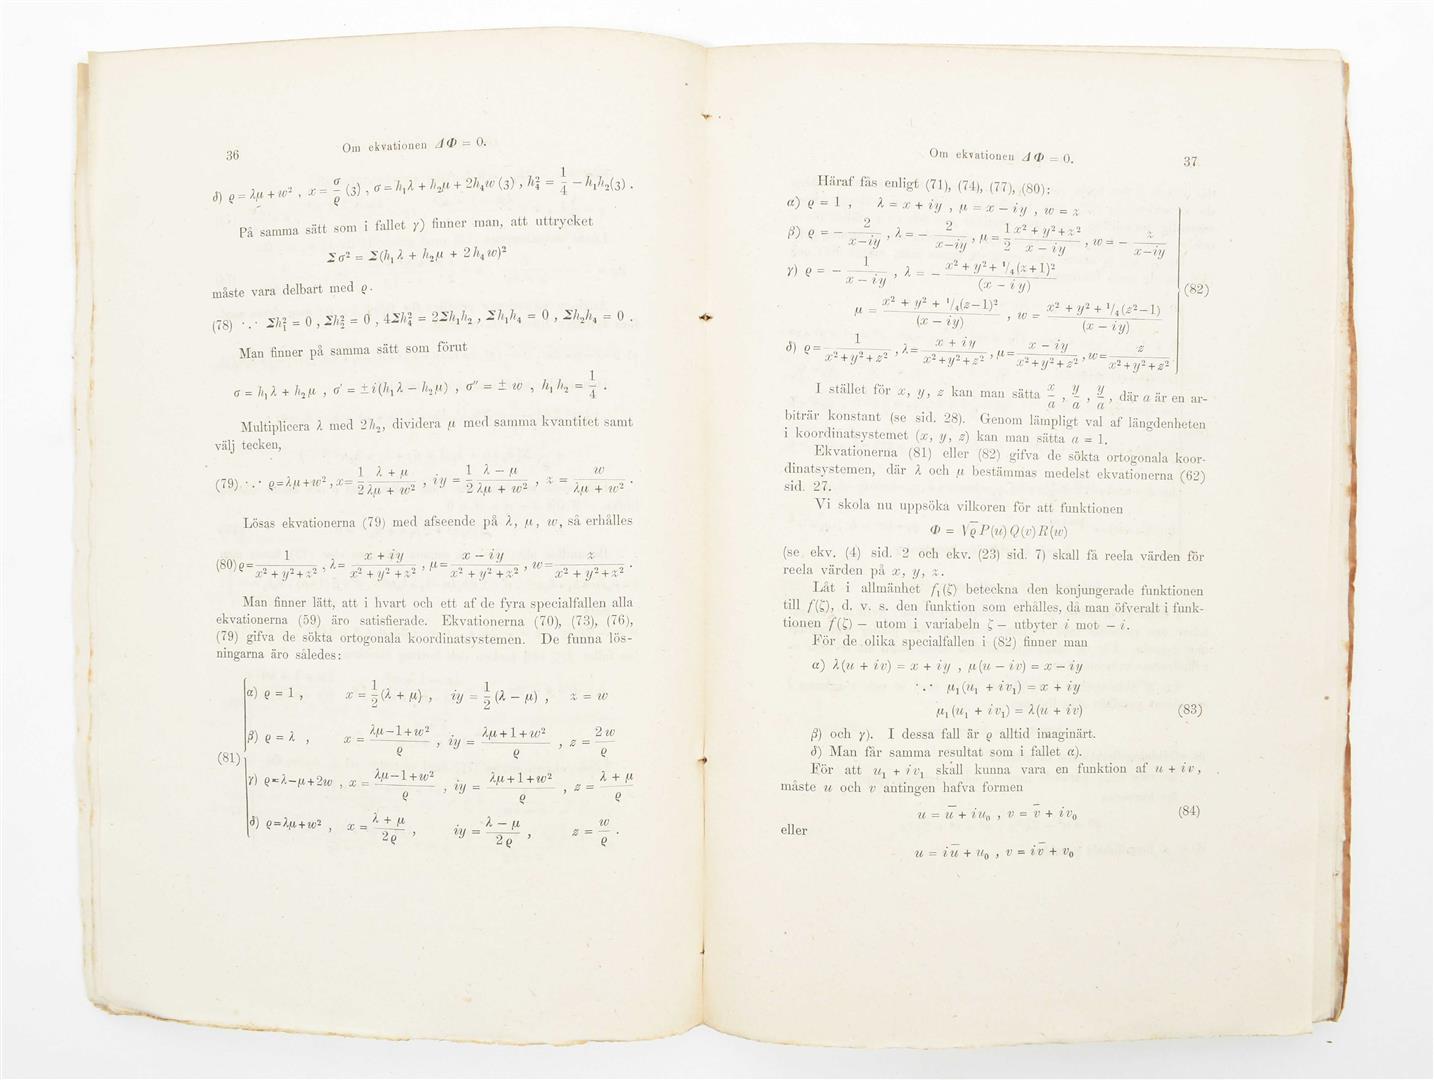 36
Om ekvationen ΔΦ = 0.
δ) ϱ = λμ + w² , x = σ/ϱ (3) , σ = h₁λ + h₂μ + 2h₄w (3) , h₄² = 1/4 − h₁h₂(3) .
På samma sätt som i fallet γ) finner man, att uttrycket
Σσ² = Σ(h₁λ + h₂μ + 2h₄w)²
måste vara delbart med ϱ.
(78) ·.· Σh₁² = 0 , Σh₂² = 0 , 4Σh₄² = 2Σh₁h₂ , Σh₁h₄ = 0 , Σh₂h₄ = 0 .
Man finner på samma sätt som förut
σ = h₁λ + h₂μ , σ′ = ± i(h₁λ − h₂μ) , σ″ = ± w , h₁h₂ = 1/4 .
Multiplicera λ med 2h₂, dividera μ med samma kvantitet samt
välj tecken,
(79) ·.· ϱ=λμ+w² , x = 1/2 (λ + μ)/(λμ + w²) , iy = 1/2 (λ − μ)/(λμ + w²) , z = w/(λμ + w²) .
Lösas ekvationerna (79) med afseende på λ, μ, w, så erhålles
(80) ϱ = 1/(x² + y² + z²) , λ = (x + iy)/(x² + y² + z²) , μ = (x − iy)/(x² + y² + z²) , w = z/(x² + y² + z²) .
Man finner lätt, att i hvart och ett af de fyra specialfallen alla
ekvationerna (59) äro satisfierade. Ekvationerna (70), (73), (76),
(79) gifva de sökta ortogonala koordinatsystemen. De funna lös-
ningarna äro således:
α) ϱ = 1 , x = 1/2 (λ + μ) , iy = 1/2 (λ − μ) , z = w
β) ϱ = λ , x = (λμ−1+w²)/ϱ , iy = (λμ+1+w²)/ϱ , z = 2w/ϱ
(81)
γ) ϱ=λ−μ+2w , x = (λμ−1+w²)/ϱ , iy = (λμ+1+w²)/ϱ , z = (λ + μ)/ϱ
δ) ϱ=λμ+w² , x = (λ + μ)/2ϱ , iy = (λ − μ)/2ϱ , z = w/ϱ .
Om ekvationen ΔΦ = 0.
37
Häraf fås enligt (71), (74), (77), (80):
α) ϱ = 1 , λ = x + iy , μ = x − iy , w = z
β) ϱ = − 2/(x−iy) , λ = − 2/(x−iy) , μ = 1/2 (x² + y² + z²)/(x − iy) , w = − z/(x−iy)
γ) ϱ = − 1/(x − iy) , λ = − (x² + y² + ¹/₄(z+1)²)/(x − iy)
(82)
μ = (x² + y² + ¹/₄(z−1)²)/(x − iy) , w = (x² + y² + ¹/₄(z²−1))/(x − iy)
δ) ϱ = 1/(x²+y²+z²) , λ = (x + iy)/(x²+y²+z²) , μ = (x − iy)/(x²+y²+z²) , w = z/(x²+y²+z²)
I stället för x, y, z kan man sätta x/a , y/a , y/a , där a är en ar-
biträr konstant (se sid. 28). Genom lämpligt val af längdenheten
i koordinatsystemet (x, y, z) kan man sätta a = 1.
Ekvationerna (81) eller (82) gifva de sökta ortogonala koor-
dinatsystemen, där λ och μ bestämmas medelst ekvationerna (62)
sid. 27.
Vi skola nu uppsöka vilkoren för att funktionen
Φ = √ϱ P(u) Q(v) R(w)
(se ekv. (4) sid. 2 och ekv. (23) sid. 7) skall få reela värden för
reela värden på x, y, z.
Låt i allmänhet f₁(ζ) beteckna den konjungerade funktionen
till f(ζ), d. v. s. den funktion som erhålles, då man öfveralt i funk-
tionen f(ζ) — utom i variabeln ζ — utbyter i mot − i.
För de olika specialfallen i (82) finner man
α) λ(u + iv) = x + iy , μ(u − iv) = x − iy
·.· μ₁(u₁ + iv₁) = x + iy
μ₁(u₁ + iv₁) = λ(u + iv) (83)
β) och γ). I dessa fall är ϱ alltid imaginärt.
δ) Man får samma resultat som i fallet α).
För att u₁ + iv₁ skall kunna vara en funktion af u + iv,
måste u och v antingen hafva formen
u = u̅ + iu₀ , v = v̅ + iv₀ (84)
eller
u = iu̅ + u₀ , v = iv̅ + v₀